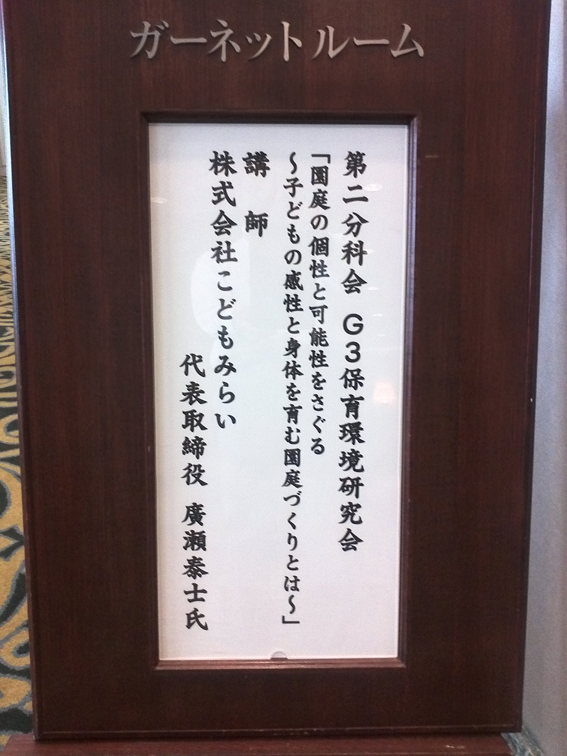 ガーネットルーム
第二分科会 G3保育環境研究会
「園庭の個性と可能性をさぐる
～子どもの感性と身体を育む園庭づくりとは～」
講師
株式会社こどもみらい
代表取締役 廣瀬泰士氏